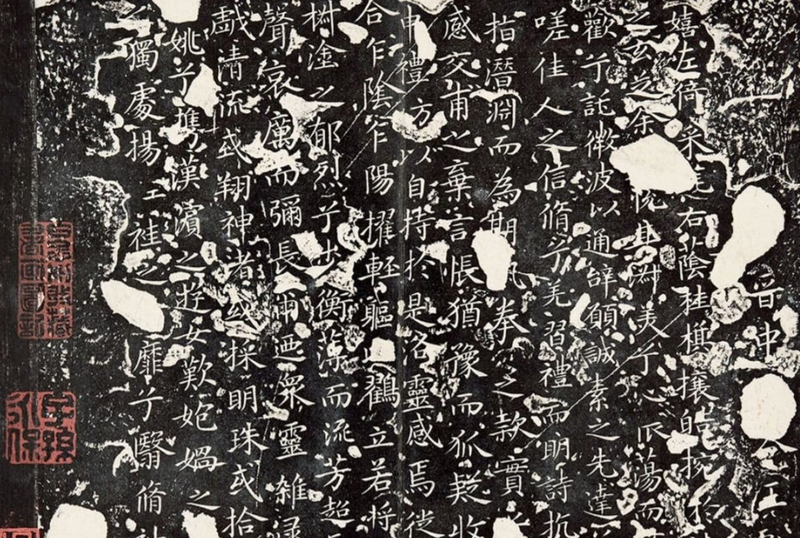 晉中令王
嬉左倚采旄右蔭桂旗攘皓
之玄芝余悅其淑美兮心振蕩而
歡兮託微波以通辭願誠素之先達
嗟佳人之信脩兮羌習禮而明詩抗
指潛淵而為期執拳之款實
感交甫之棄言悵猶豫而狐疑收
申禮防以自持於是洛靈感焉徙
合乍陰乍陽擢輕軀以鶴立若將
椒塗之郁烈兮步衡薄而流芳超
聲哀厲而彌長爾迺眾靈雜
戲清流或翔神渚或採明珠或拾
姚兮攜漢濱之遊女歎媧之
之獨處揚袿之靡兮翳脩
子孫永保